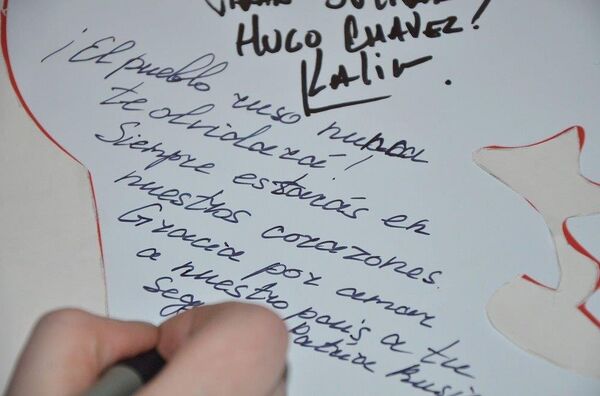 HUGO CHAVEZ!
Kaliv.
¡El pueblo ruso nunca
te olvidará!
Siempre estarás en
nuestros corazones.
Gracia por amar
a nuestro país a tu
seg Patria Rusi